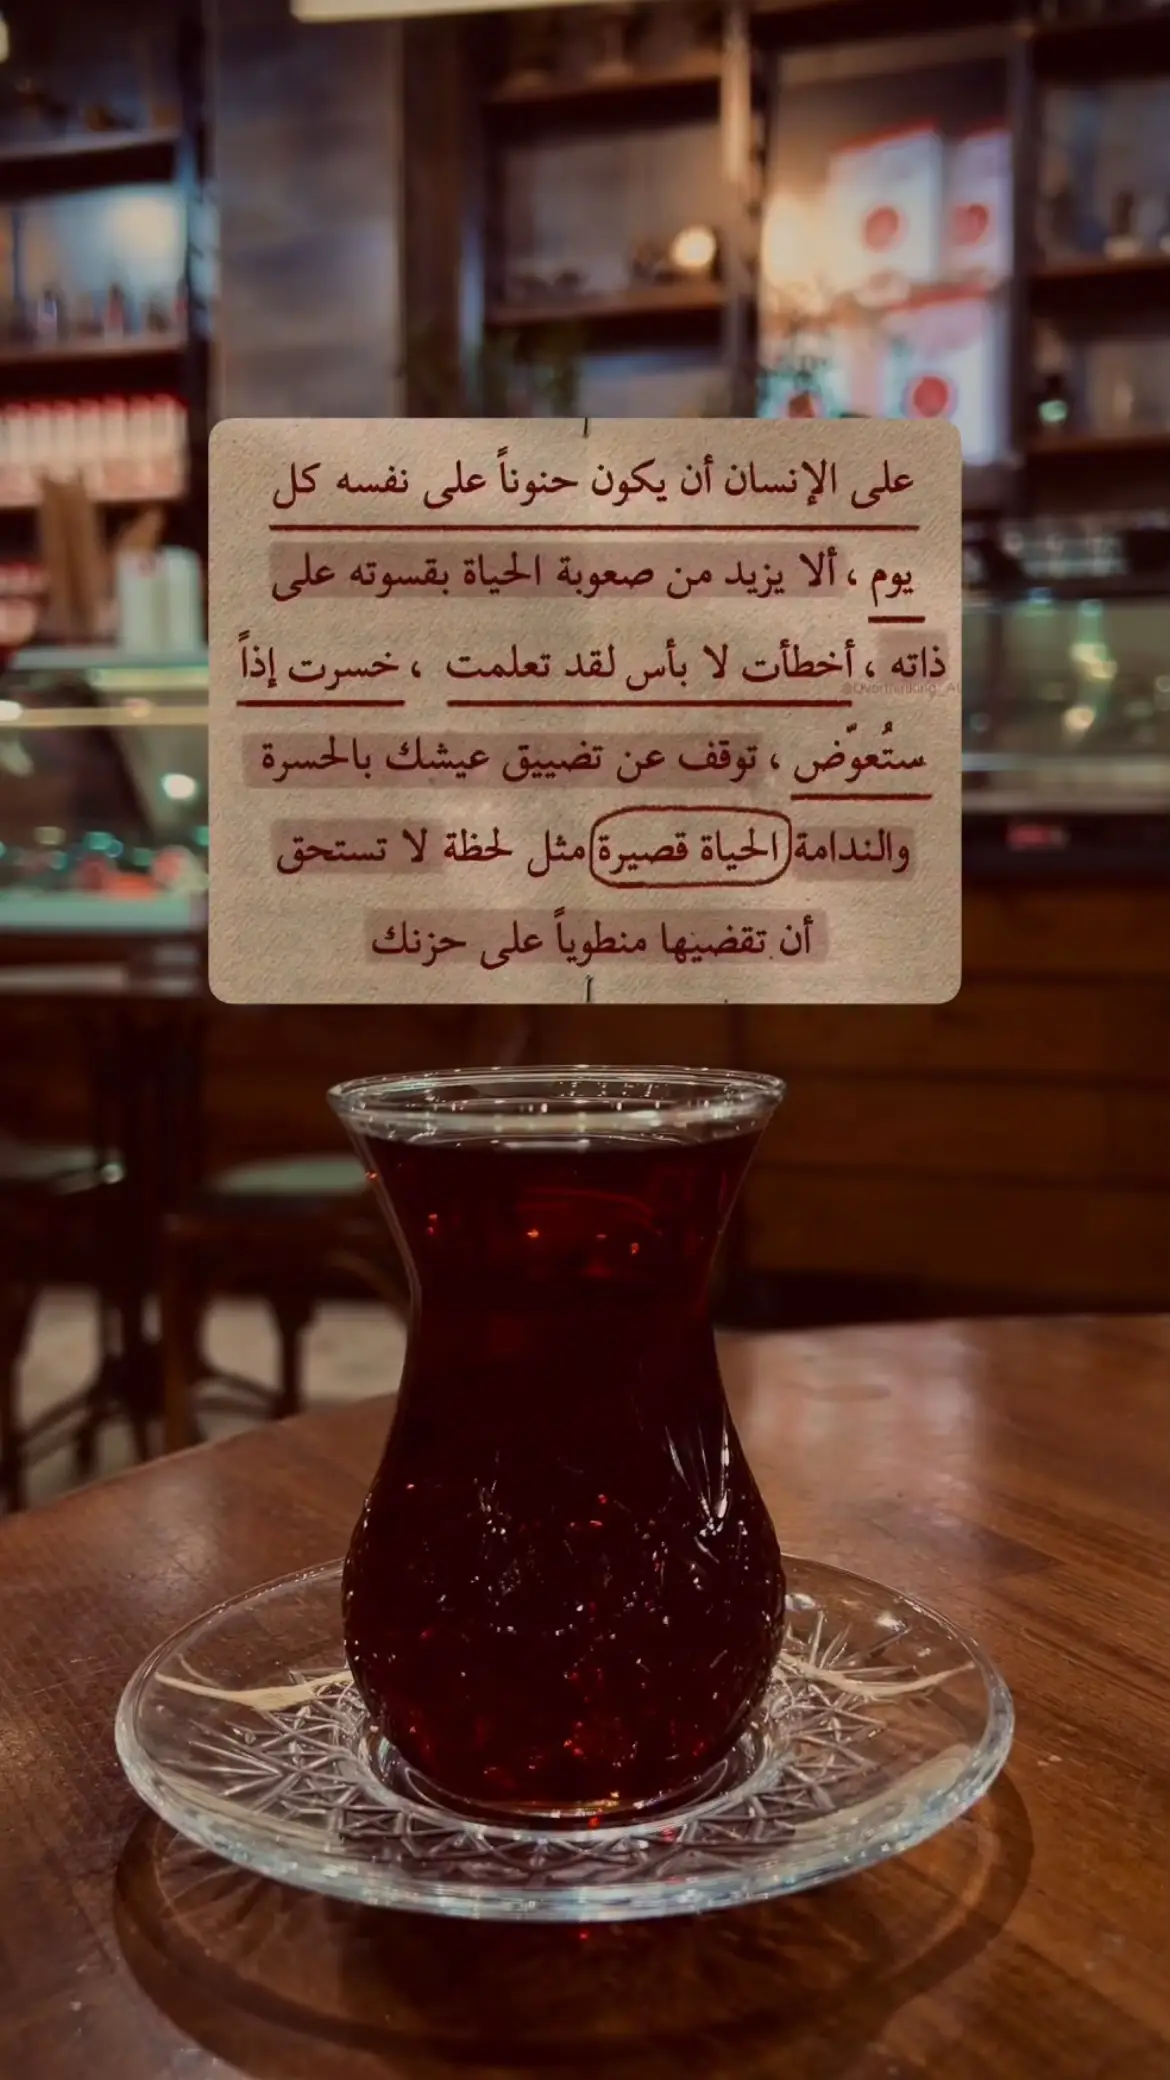 على الإنسان أن يكون حنوناً على نفسه كل
يوم ، ألا يزيد من صعوبة الحياة بقسوته على
ذاته ، أخطأت لا بأس لقد تعلمت ، خسرت إذاً
ستُعوّض ، توقف عن تضييق عيشك بالحسرة
والندامة الحياة قصيرة مثل لحظة لا تستحق
أن تقضيها منطوياً على حزنك